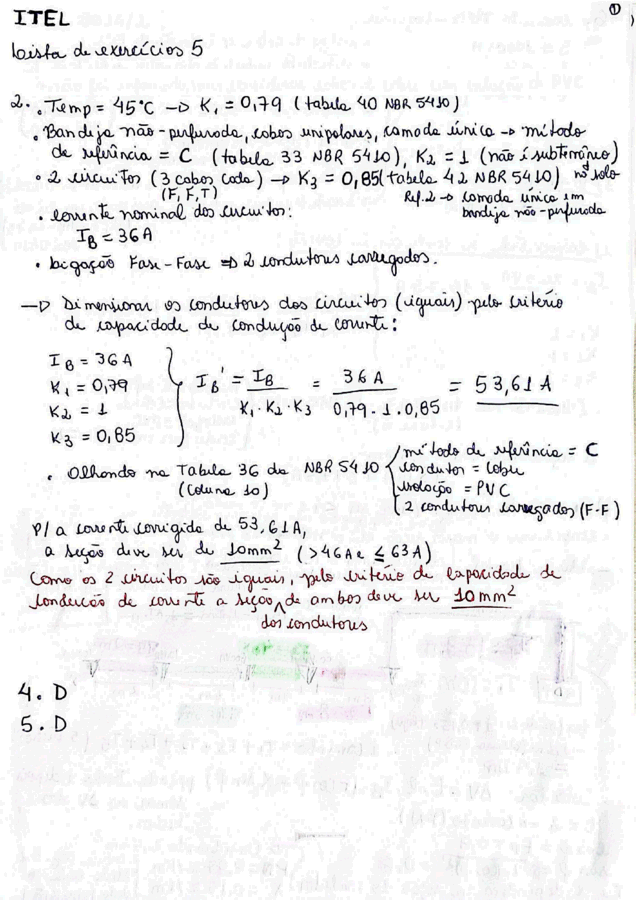 ITEL
1
Lista de exercícios 5
2. • Temp = 45°C → K1 = 0,79 (tabela 40 NBR 5410)
• Bandeja não-perfurada, cabos unipolares, camada única → método
de referência = C (tabela 33 NBR 5410), K2 = 1 (não é subterrâneo)
• 2 circuitos (3 cabos cada) → K3 = 0,85 (tabela 42 NBR 5410) no solo
(F, F, T) Ref. 2 → camada única em
• corrente nominal dos circuitos: bandeja não-perfurada
IB = 36A
• Ligação Fase-Fase ⇒ 2 condutores carregados.
→ Dimensionar os condutores dos circuitos (iguais) pelo critério
de capacidade de condução de corrente:
IB = 36A
K1 = 0,79
K2 = 1
K3 = 0,85
IB' = IB / K1 · K2 · K3 = 36A / 0,79 · 1 · 0,85 = 53,61A
• Olhando na Tabela 36 da NBR 5410
(coluna 10)
método de referência = C
condutor = cobre
isolação = PVC
2 condutores carregados (F-F)
P/ a corrente corrigida de 53,61A,
a seção deve ser de 10mm² (>46A e ≤ 63A)
Como os 2 circuitos são iguais, pelo critério de capacidade de
condução de corrente a seção ^ de ambos deve ser 10mm²
dos condutores
4. D
5. D